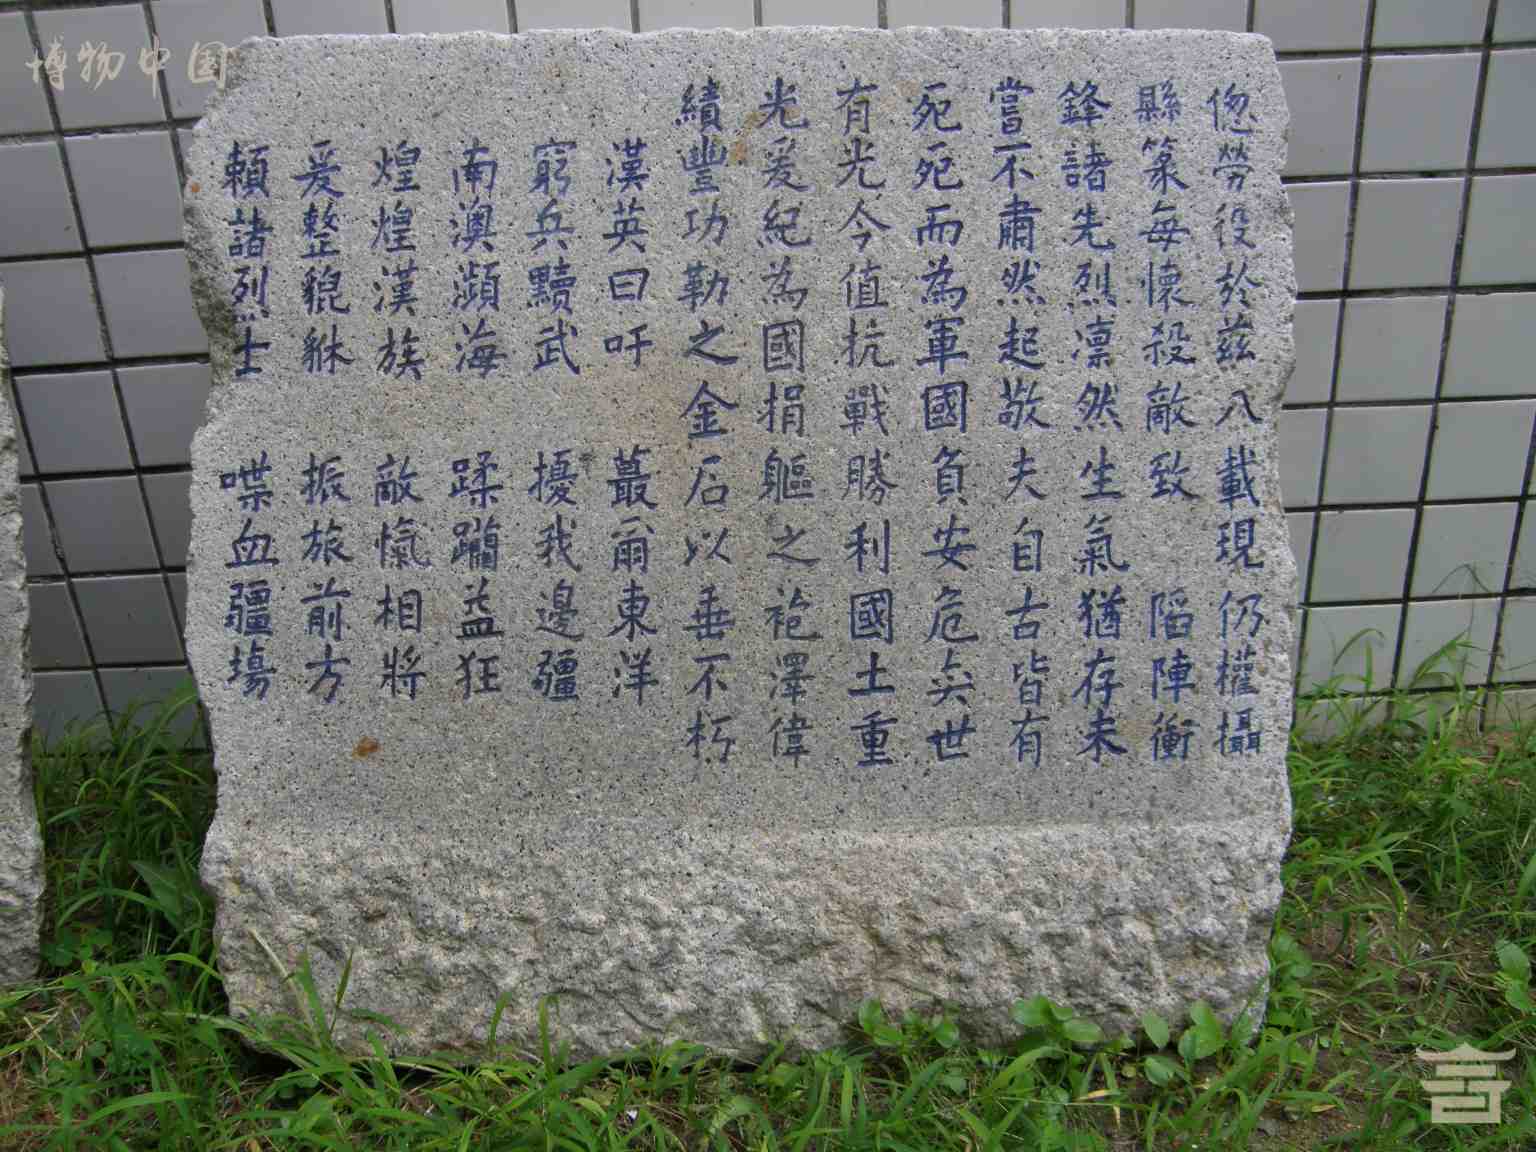 偬勞役於茲八載現仍權攝
縣篆每懷殺敵致陷陣衝
鋒諸先烈凛然生氣猶存未
嘗不肅然起敬夫自古皆有
死死而為軍國負安危奂世
有光今值抗戰勝利國土重
光爰紀為國捐軀之袍澤偉
績豐功勒之金石以垂不朽
漢英曰吁 蕞爾東洋
窮兵黷武 擾我邊疆
南澳瀕海 蹂躪益狂
煌煌漢族 敵愾相將
爰整貔貅 振旅前方
賴諸烈士 喋血疆場
博物中国